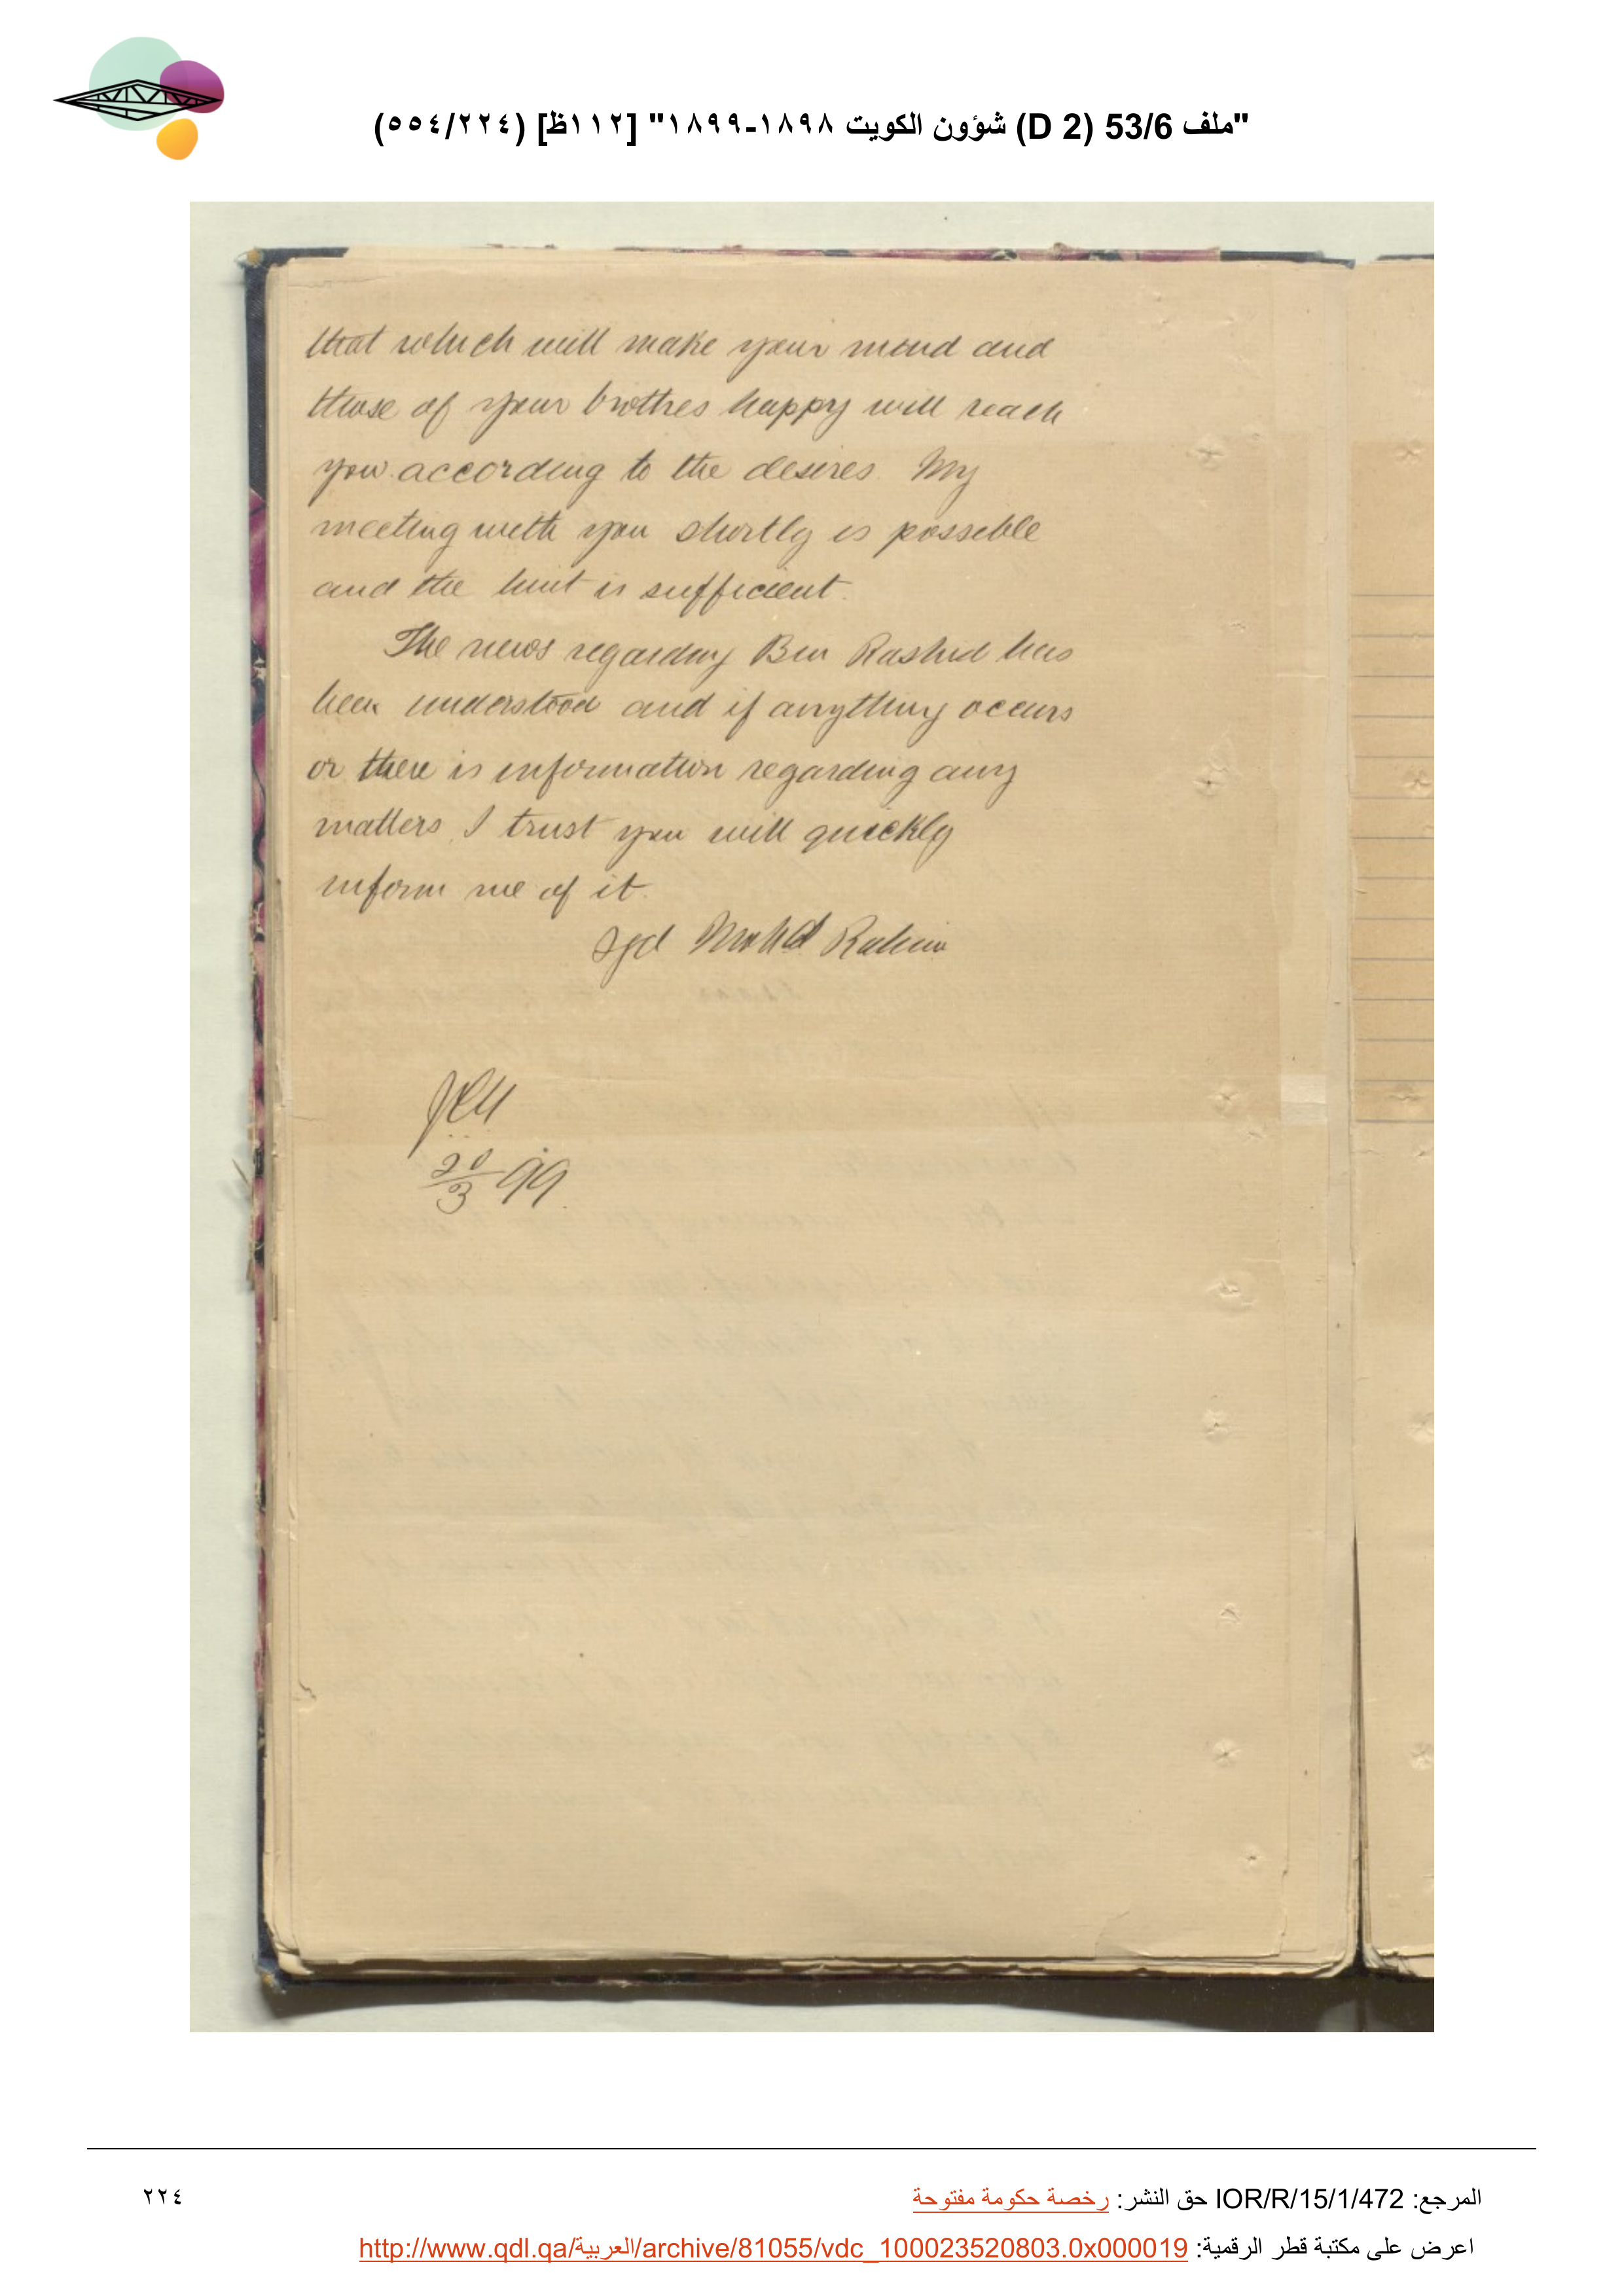 "ملف 53/6 (D 2) شؤون الكويت ١٨٩٨-١٨٩٩" [١١٢ظ] (٥٥٤/٢٢٤)
that which will make your mind and
those of your brothres happy will reach
you according to the desires. My
meeting with you shortly is possible
and the hint is sufficient.
The news regarding Bin Rashid has
been understood and if anything occurs
or there is information regarding any
matters, I trust you will quickly
inform me of it.
Sgd Mohd Rahim
20/3 99
المرجع: IOR/R/15/1/472 حق النشر: رخصة حكومة مفتوحة
٢٢٤
اعرض على مكتبة قطر الرقمية: http://www.qdl.qa/العربية/archive/81055/vdc_100023520803.0x000019